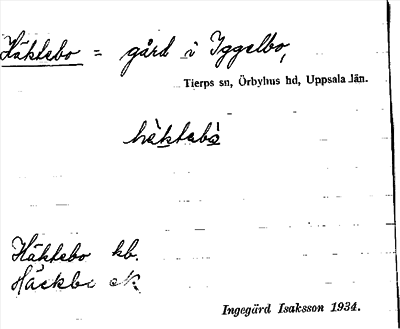 Häktebo = gård i Iggelbo,
Tierps sn, Örbyhus hd, Uppsala län.
hä̀ktebò
Häktebo kb.
Häckbo ek
Ingegärd Isaksson 1934.